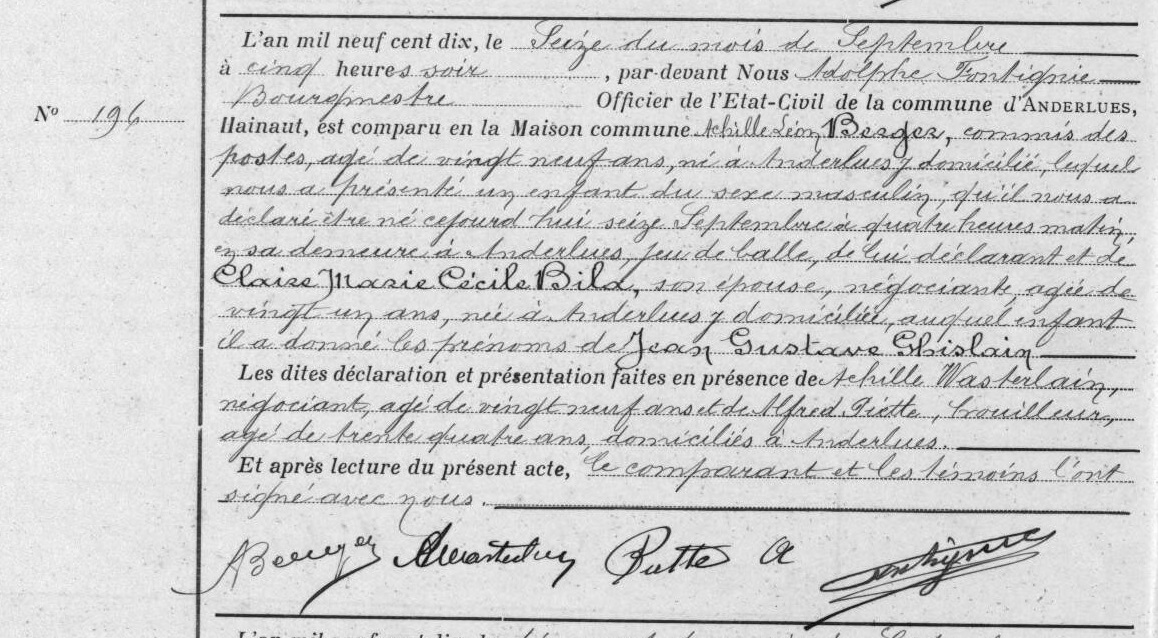 L'an mil neuf cent dix, le Seize du mois de Septembre
à cinq heures soir , par-devant Nous Adolphe Fontignie
Bourgmestre Officier de l'Etat-Civil de la commune d'ANDERLUES,
Nº 196
Hainaut, est comparu en la Maison commune Achille Léon Berger, commis des
postes, agé de vingt neuf ans, né à Anderlues y domicilié, lequel
nous a présenté un enfant du sexe masculin, qu'il nous a
déclaré être né cejourd'hui seize Septembre à quatre heures matin,
en sa demeure à Anderlues, jeu de balle, de lui déclarant et de
Claire Marie Cécile Bild, son épouse, négociante, agée de
vingt un ans, née à Anderlues y domiciliée, auquel enfant
il a donné les prénoms de Jean Gustave Ghislain
Les dites déclaration et présentation faites en présence de Achille Wasterlain,
négociant, agé de vingt neuf ans et de Alfred Piette, houilleur,
agé de trente quatre ans, domiciliés à Anderlues.
Et après lecture du présent acte, le comparant et les témoins l'ont
signé avec nous.
ABerger AWasterlain Piette A Fontignie